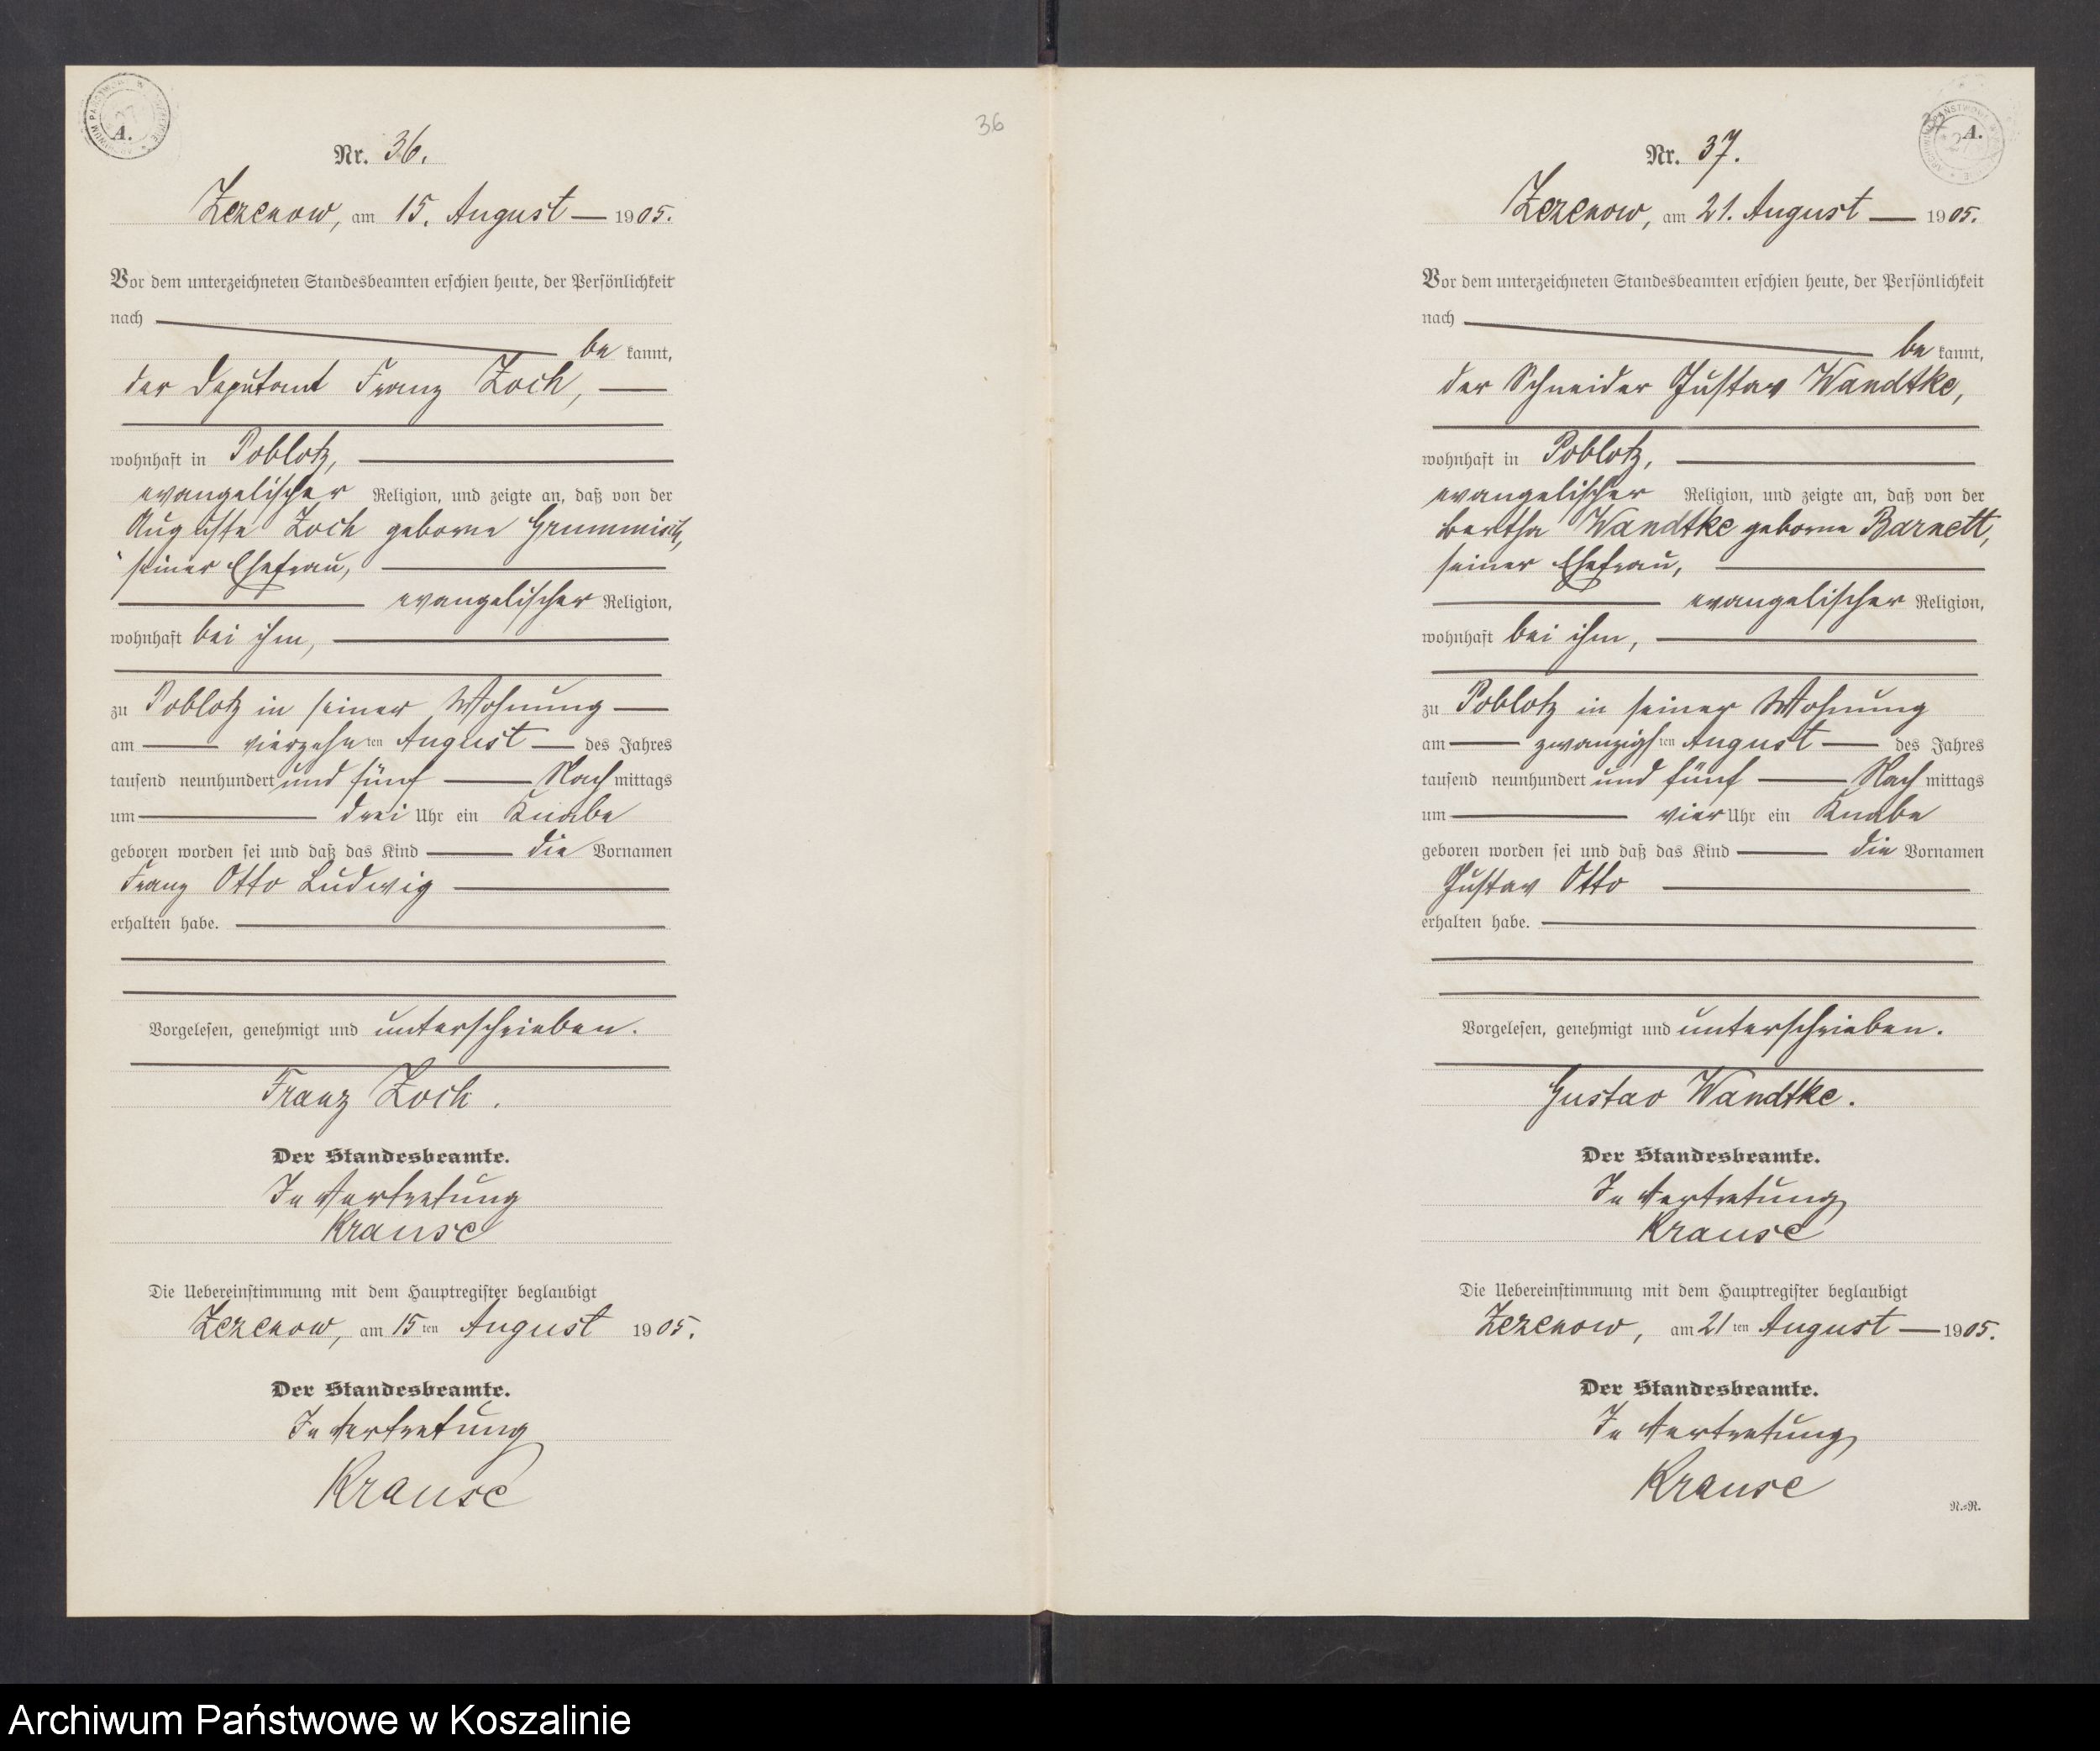 A.
Nr. 36.
Zezenow, am 15. August 1905.
Vor dem unterzeichneten Standesbeamten erschien heute, der Persönlichkeit
nach
be kannt,
der Deputant Franz Zoch,
wohnhaft in Poblotz,
evangelischer Religion, und zeigte an, daß von der
Auguste Zoch geborne
seiner Ehefrau,
evangelischer Religion,
wohnhaft bei ihm,
zu Poblotz in seiner Wohnung
am vierzehn ten August des Jahres
tausend neunhundert und fünf Nach mittags
um drei Uhr ein Knabe
geboren worden sei und daß das Kind die Vornamen
Franz Otto Ludwig
erhalten habe.
Vorgelesen, genehmigt und unterschrieben.
Franz Zoch.
Der Standesbeamte.
In Vertretung
Krause
Die Uebereinstimmung mit dem Hauptregister beglaubigt
Zezenow, am 15 ten August 1905.
Der Standesbeamte.
In Vertretung
Krause
36
37
A.
Nr. 37.
Zezenow, am 21. August 1905.
Vor dem unterzeichneten Standesbeamten erschien heute, der Persönlichkeit
nach
be kannt,
der Schneider Gustav Wandtke,
wohnhaft in Poblotz,
evangelischer Religion, und zeigte an, daß von der
Bertha Wandtke geborne Barnett,
seiner Ehefrau,
evangelischer Religion,
wohnhaft bei ihm,
zu Poblotz in seiner Wohnung
am zwanzigs ten August des Jahres
tausend neunhundert und fünf Nach mittags
um vier Uhr ein Knabe
geboren worden sei und daß das Kind die Vornamen
Gustav Otto
erhalten habe.
Vorgelesen, genehmigt und unterschrieben.
Gustav Wandtke.
Der Standesbeamte.
In Vertretung
Krause
Die Uebereinstimmung mit dem Hauptregister beglaubigt
Zezenow, am 21 ten August 1905.
Der Standesbeamte.
In Vertretung
Krause
R.=R.
Archiwum Państwowe w Koszalinie